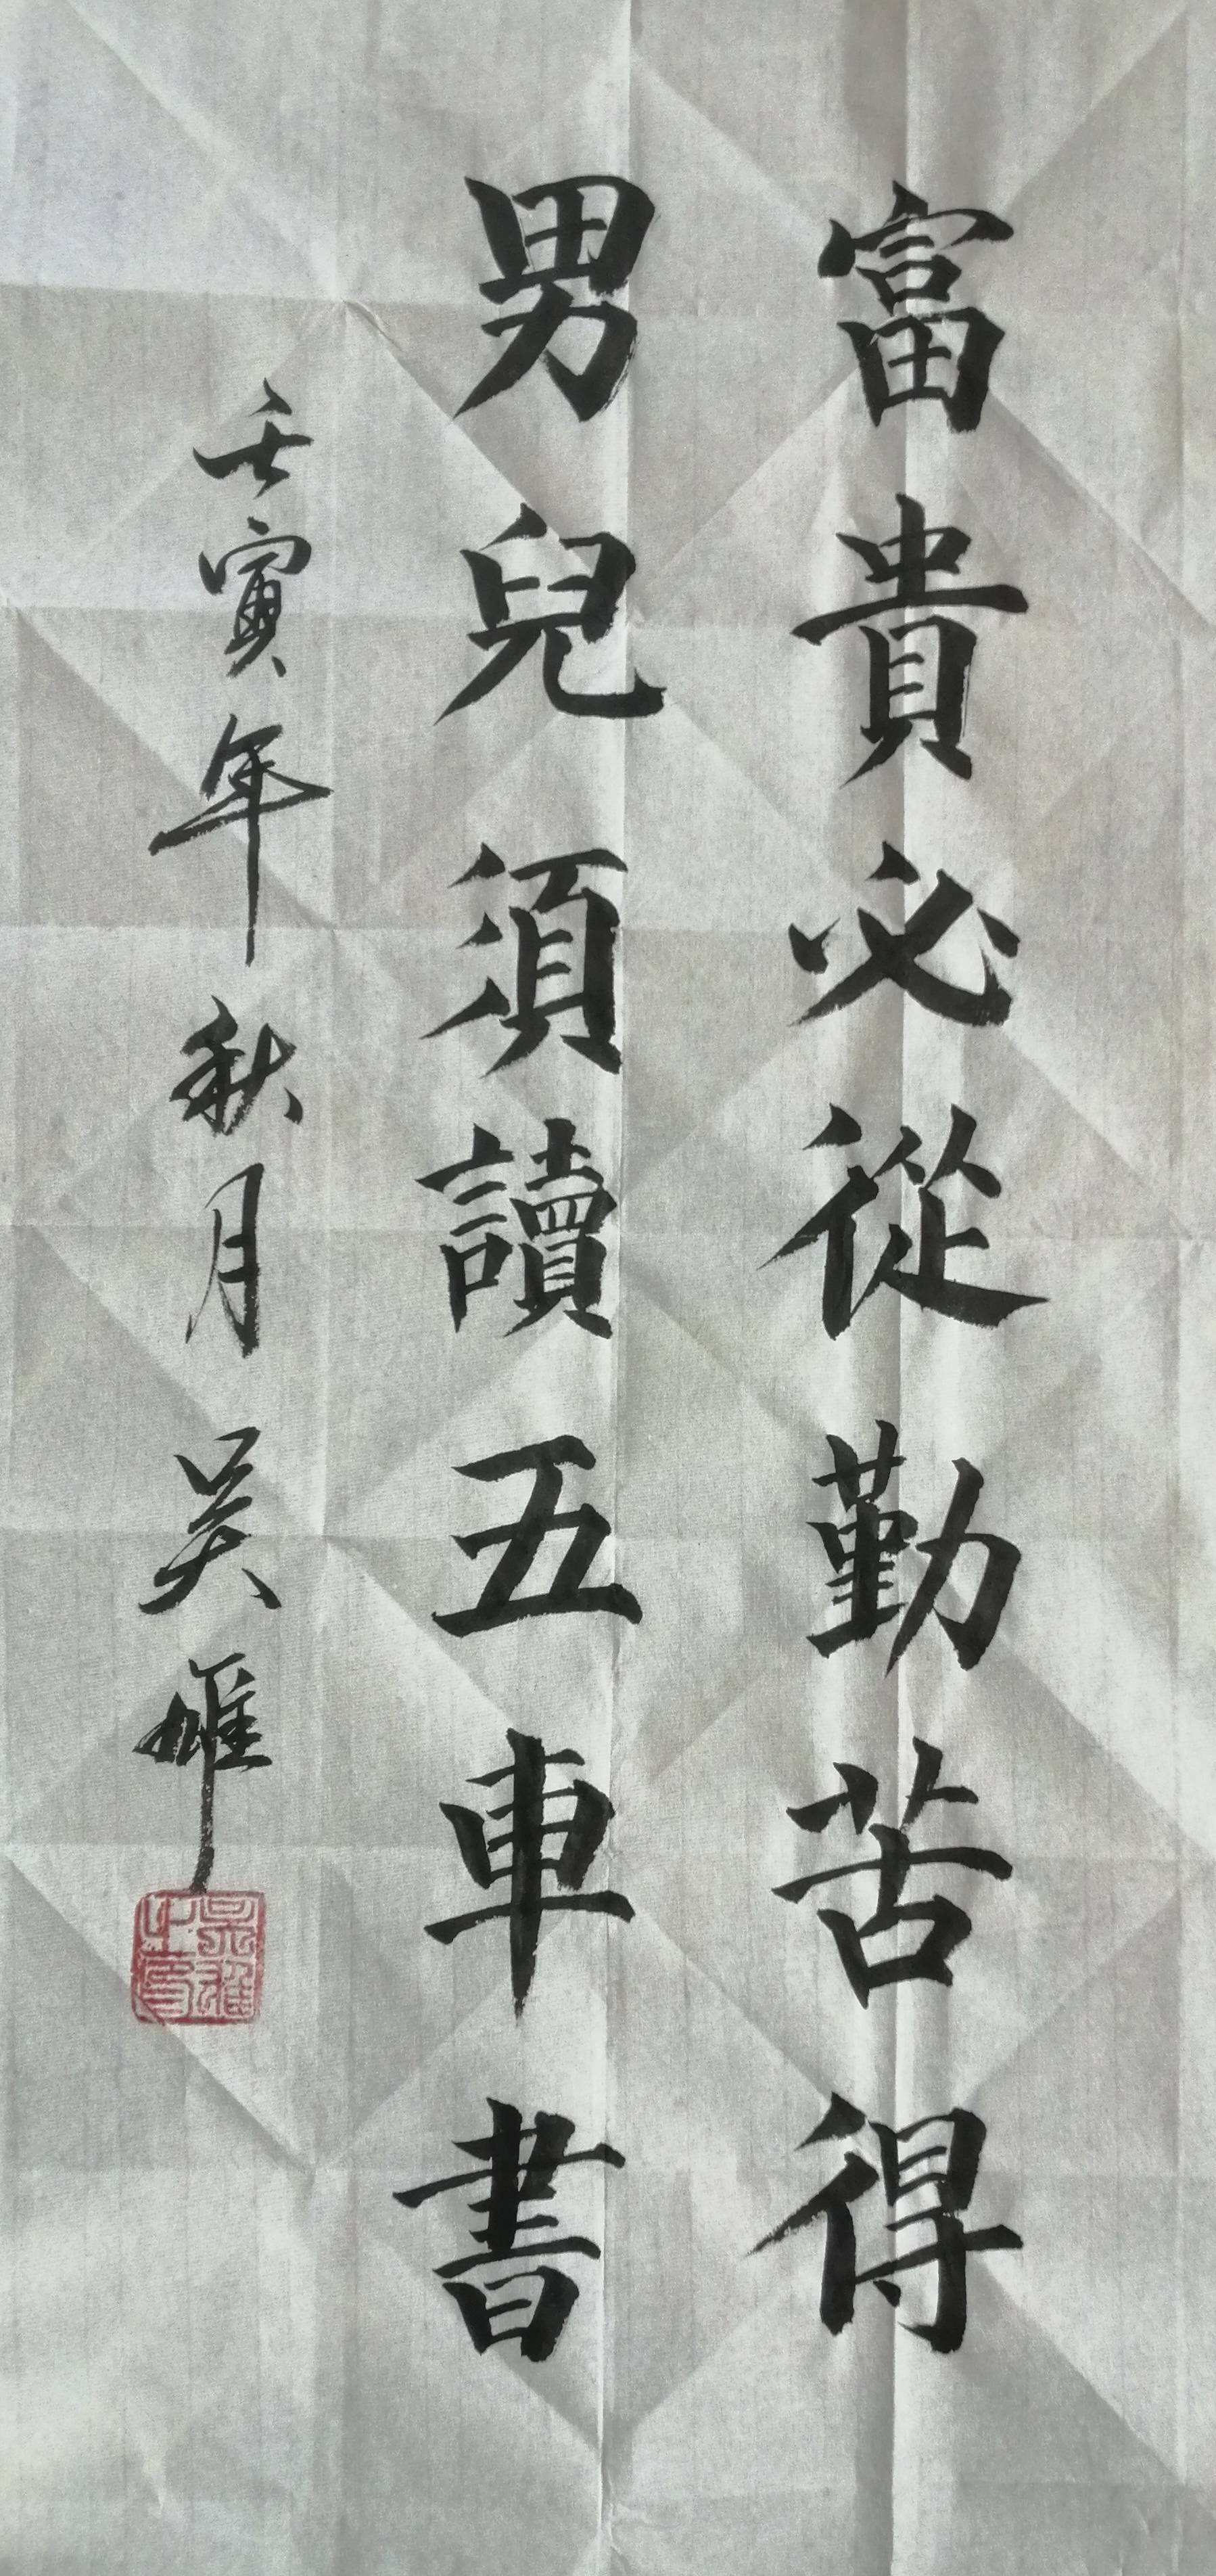 富貴必從勤苦得
男兒須讀五車書
壬寅年秋月吴雅